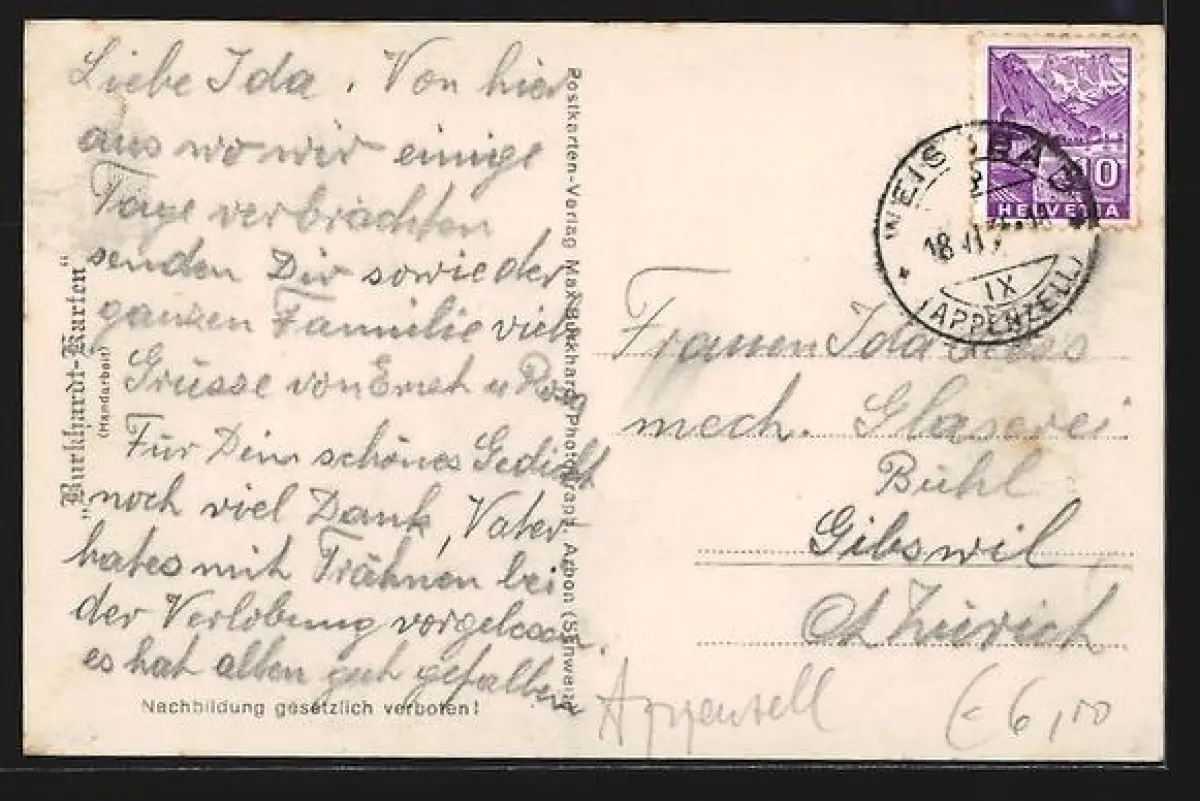 Liebe Ida. Von hier
aus wo wir einige
Tage verbrachten
senden Dir sowie der
ganzen Familie viele
Grüsse von Ernst u Rosy
Für Dein schönes Gedicht
noch viel Dank, Vater
hat es mit Trähnen bei
der Verlobung vorgelesen.
es hat allen gut gefallen
Nachbildung gesetzlich verboten!
"Burkhardt-Karten"
(Handarbeit)
Postkarten-Verlag Max Burkhard, Photogr. Arbon (Schweiz)
HELVETIA
10
WEISSBAD
18.
IX
(APPENZELL)
Frauen Ida
mech. Glaserei
Bühl
Gibswil
Ct Zürich
Appenzell
€ 6,00